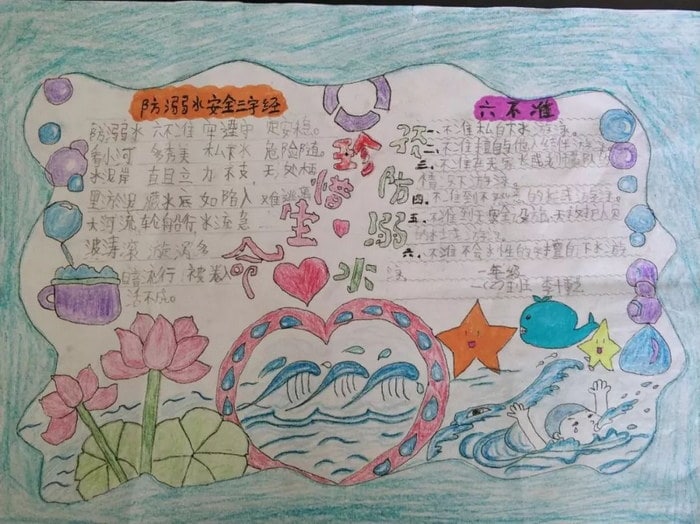 防溺水安全三字经
防溺水 六不准 牢遵守 更安稳。
多小河 多秀美 私下水 危险随
水 岸 直且立 力不支 无处
里淤泥 藏水底 如陷入 难逃离
大河流 轮船行 水流急
波涛滚 漩涡多
暗流行 被卷入
活不成。
珍惜生命
防溺水
六不准
一、不准私自下水游泳。
不准擅自与他人结伴游泳
三、不准在无家长或老师带队的
情况下游泳
四、不准到不熟悉的水域游泳。
五、不准到无安全设施、无救护人员
的水域游泳
六、不准不会水性的学生擅自下水施
一年级
班 李